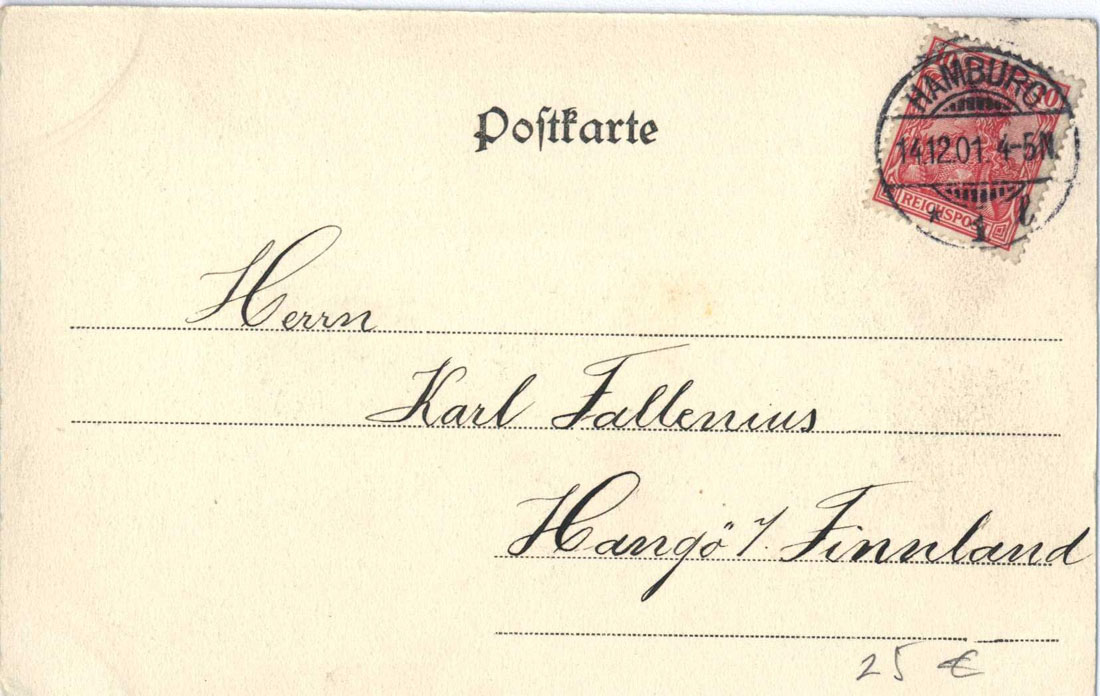 Poſtkarte
10
HAMBURG
14.12.01. 4-5N.
* 1 l
REICHSPOST
Herrn
Karl Fallenius
Hangö /. Finnland
25 €